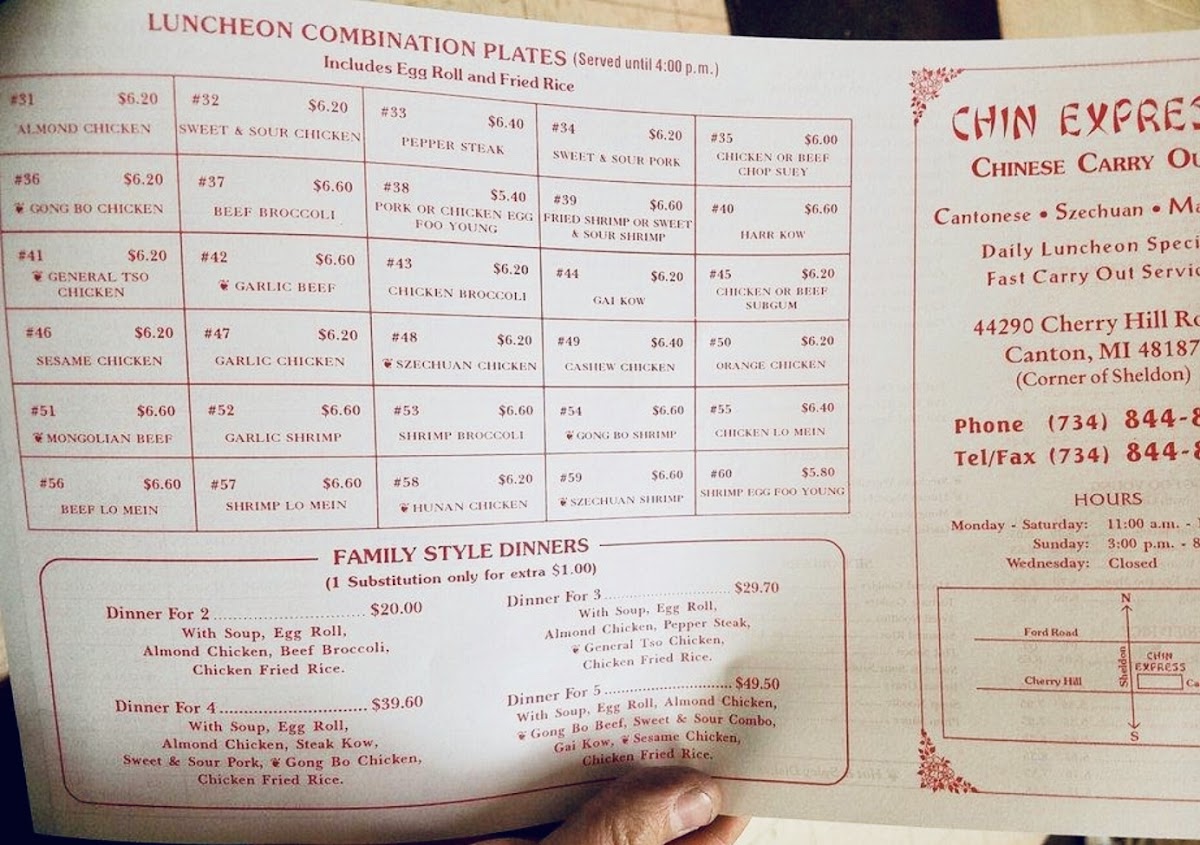 LUNCHEON COMBINATION PLATES (Served until 4:00 p.m.)
Includes Egg Roll and Fried Rice
#31 $6.20
ALMOND CHICKEN
#32 $6.20
SWEET & SOUR CHICKEN
#33 $6.40
PEPPER STEAK
#34 $6.20
SWEET & SOUR PORK
#35 $6.00
CHICKEN OR BEEF
CHOP SUEY
#36 $6.20
GONG BO CHICKEN
#37 $6.60
BEEF BROCCOLI
#38 $5.40
PORK OR CHICKEN EGG
FOO YOUNG
#39 $6.60
FRIED SHRIMP OR SWEET
& SOUR SHRIMP
#40 $6.60
HARR KOW
#41 $6.20
GENERAL TSO
CHICKEN
#42 $6.60
GARLIC BEEF
#43 $6.20
CHICKEN BROCCOLI
#44 $6.20
GAI KOW
#45 $6.20
CHICKEN OR BEEF
SUBGUM
#46 $6.20
SESAME CHICKEN
#47 $6.20
GARLIC CHICKEN
#48 $6.20
SZECHUAN CHICKEN
#49 $6.40
CASHEW CHICKEN
#50 $6.20
ORANGE CHICKEN
#51 $6.60
MONGOLIAN BEEF
#52 $6.60
GARLIC SHRIMP
#53 $6.60
SHRIMP BROCCOLI
#54 $6.60
GONG BO SHRIMP
#55 $6.40
CHICKEN LO MEIN
#56 $6.60
BEEF LO MEIN
#57 $6.60
SHRIMP LO MEIN
#58 $6.20
HUNAN CHICKEN
#59 $6.60
SZECHUAN SHRIMP
#60 $5.80
SHRIMP EGG FOO YOUNG
FAMILY STYLE DINNERS
(1 Substitution only for extra $1.00)
Dinner For 2 $20.00
With Soup, Egg Roll,
Almond Chicken, Beef Broccoli,
Chicken Fried Rice.
Dinner For 3 $29.70
With Soup, Egg Roll,
Almond Chicken, Pepper Steak,
General Tso Chicken,
Chicken Fried Rice.
Dinner For 4 $39.60
With Soup, Egg Roll,
Almond Chicken, Steak Kow,
Sweet & Sour Pork, Gong Bo Chicken,
Chicken Fried Rice.
Dinner For 5 $49.50
With Soup, Egg Roll, Almond Chicken,
Gong Bo Beef, Sweet & Sour Combo,
Gai Kow, Sesame Chicken,
Chicken Fried Rice.
CHIN EXPRES
CHINESE CARRY OU
Cantonese • Szechuan • Ma
Daily Luncheon Speci
Fast Carry Out Servic
44290 Cherry Hill Ro
Canton, MI 48187
(Corner of Sheldon)
Phone (734) 844-8
Tel/Fax (734) 844-8
HOURS
Monday - Saturday: 11:00 a.m. -
Sunday: 3:00 p.m. - 8
Wednesday: Closed
N
Ford Road
Sheldon
CHIN
EXPRESS
Cherry Hill
Ca
S